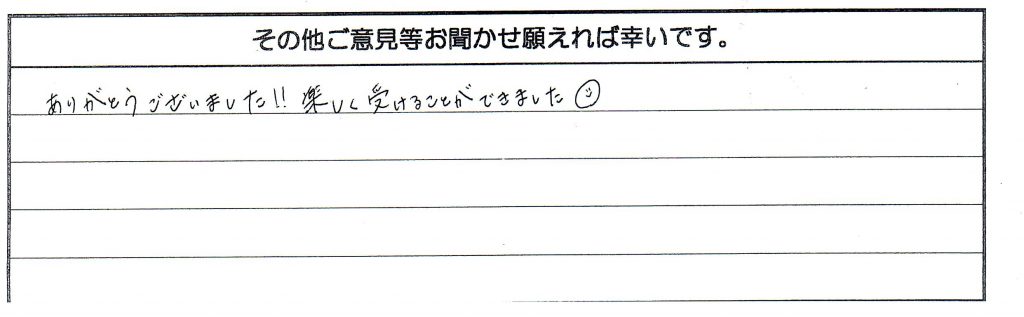 その他ご意見等お聞かせ願えれば幸いです。
ありがとうございました!! 楽しく受けることができました☺